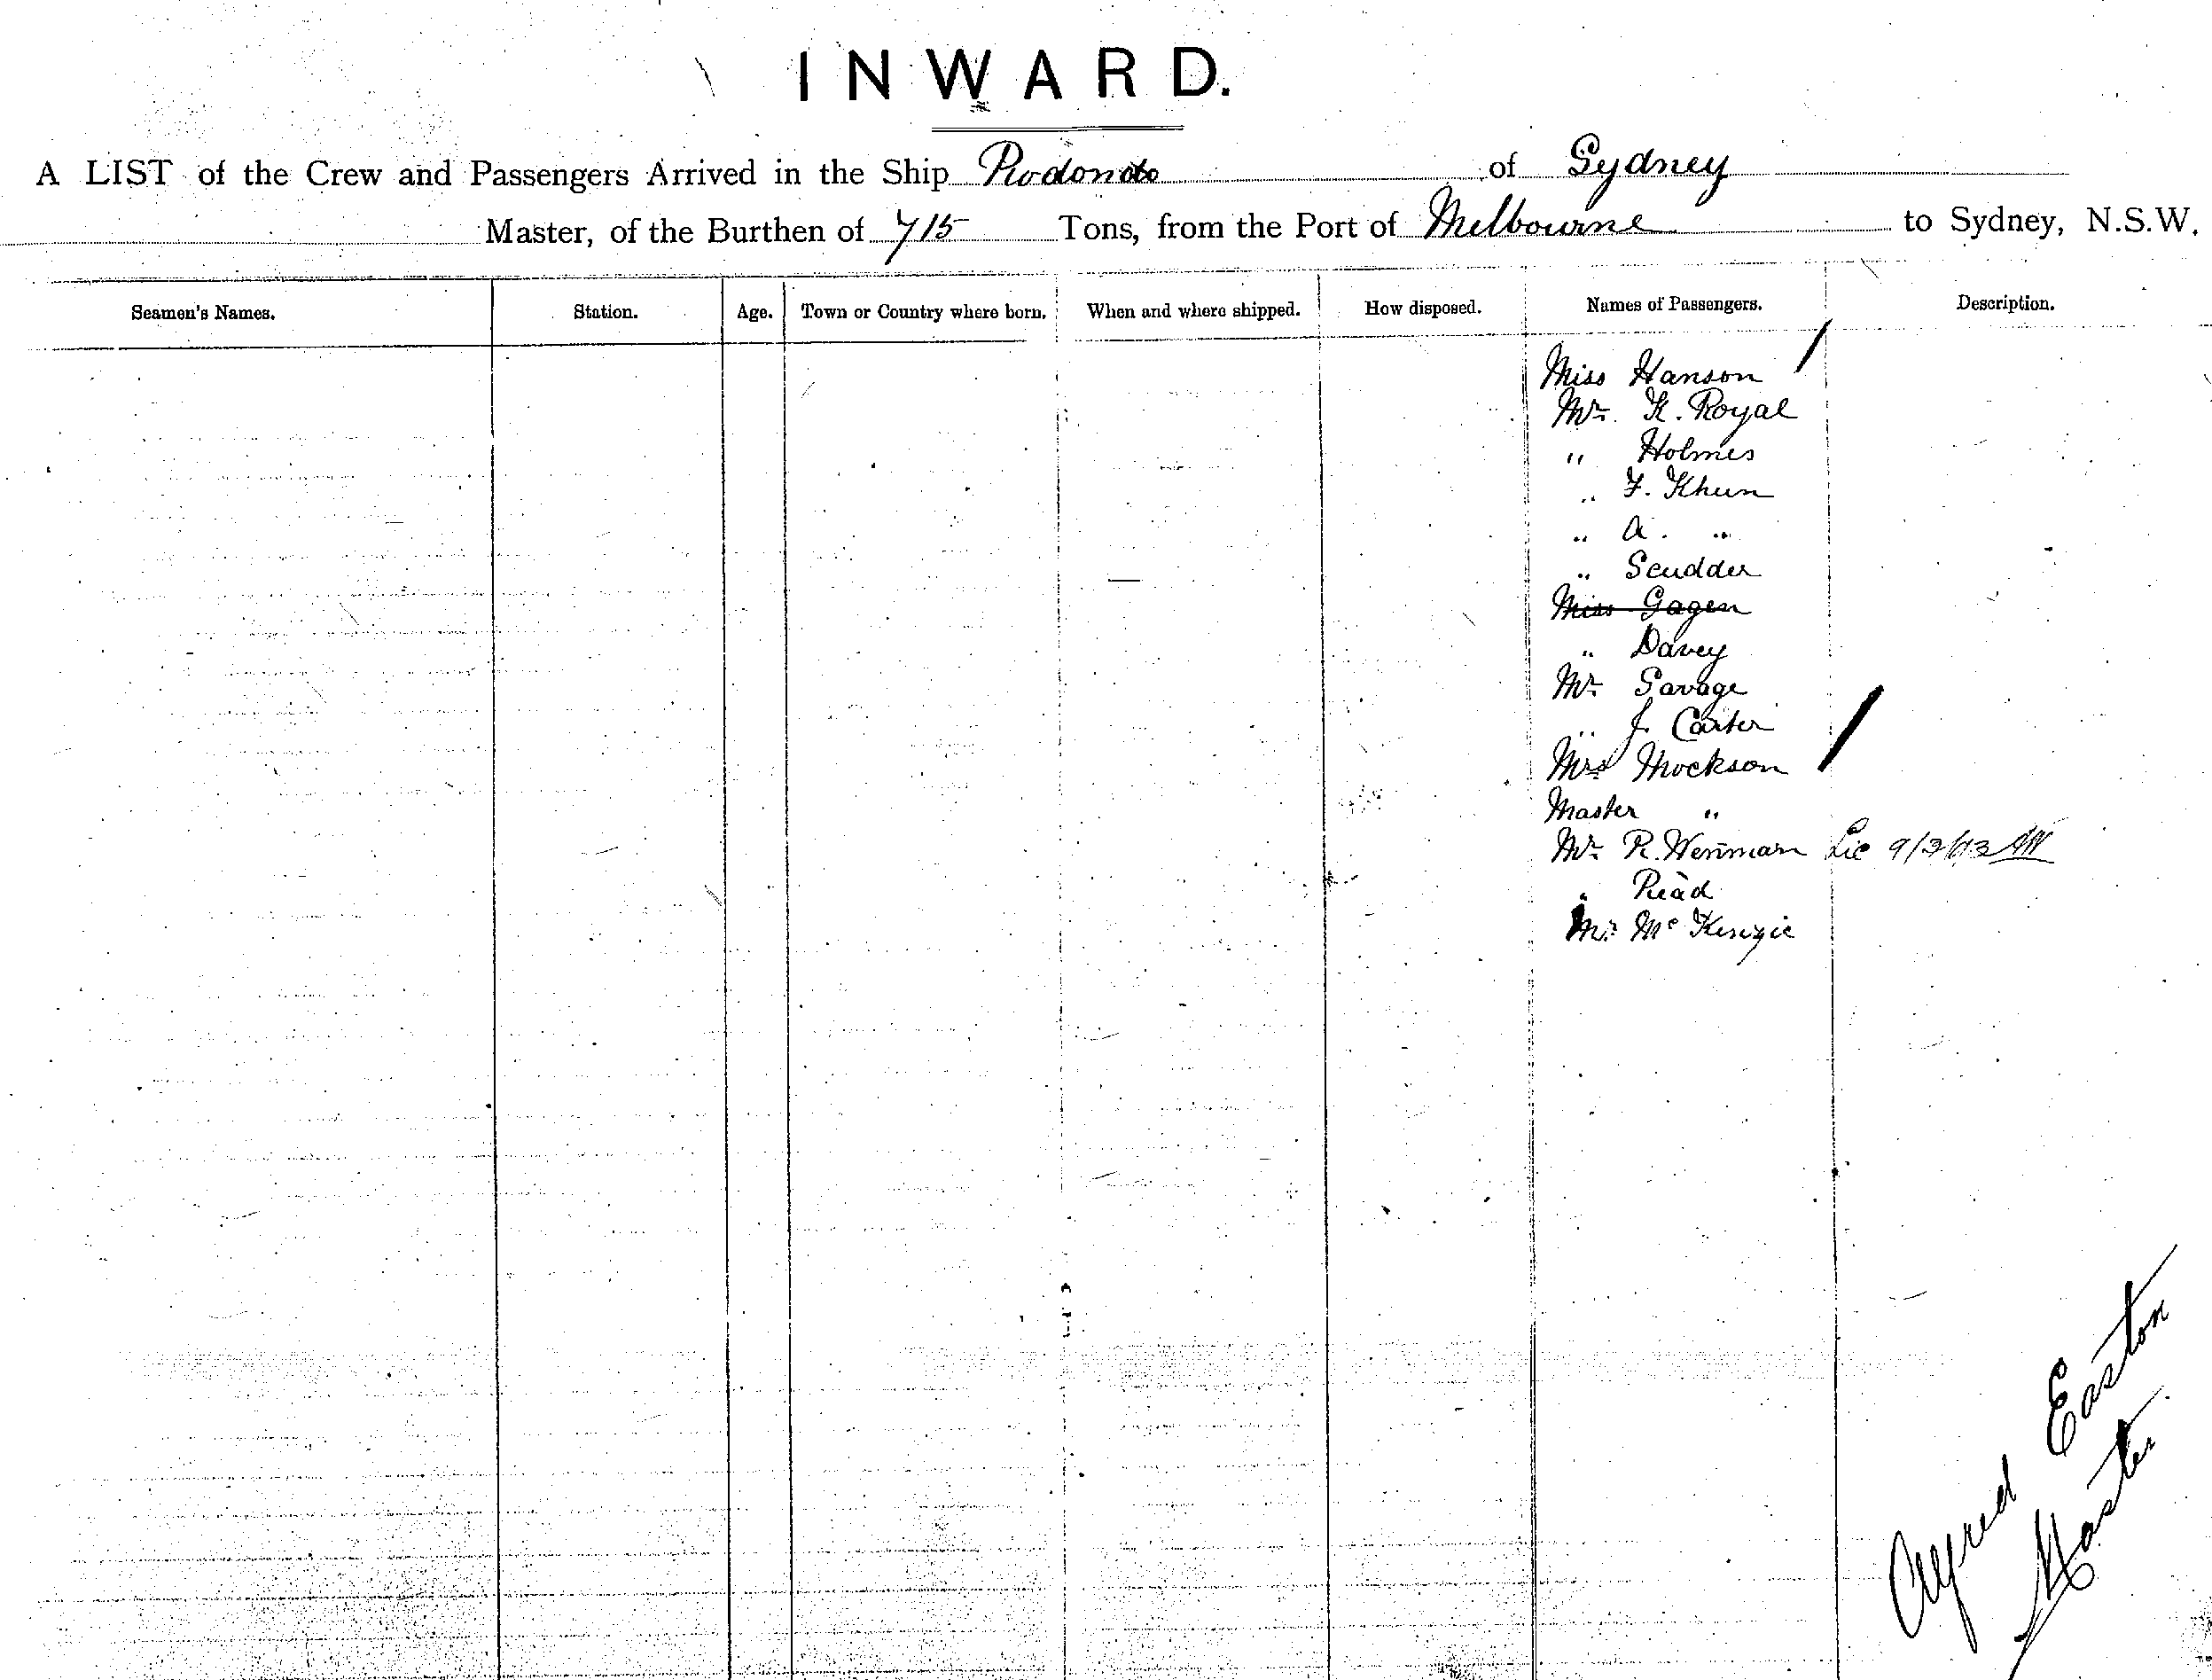 INWARD.
A LIST of the Crew and Passengers Arrived in the Ship Rodondo of Sydney
Master, of the Burthen of 715 Tons, from the Port of Melbourne to Sydney, N.S.W.
Seamen's Names. Station. Age. Town or Country where born. When and where shipped. How disposed. Names of Passengers. Description.
Miss Hanson
Mr. K. Royal
" Holmes
" F. Khun
" A. "
" Scudder
Miss Gagen
" Davey
Mr Savage
" J. Carter
Mrs Mockson
Master "
Mr R. Wenman Lic
" Read
Mr. Mc Kenzie
Alfred Easton
Master